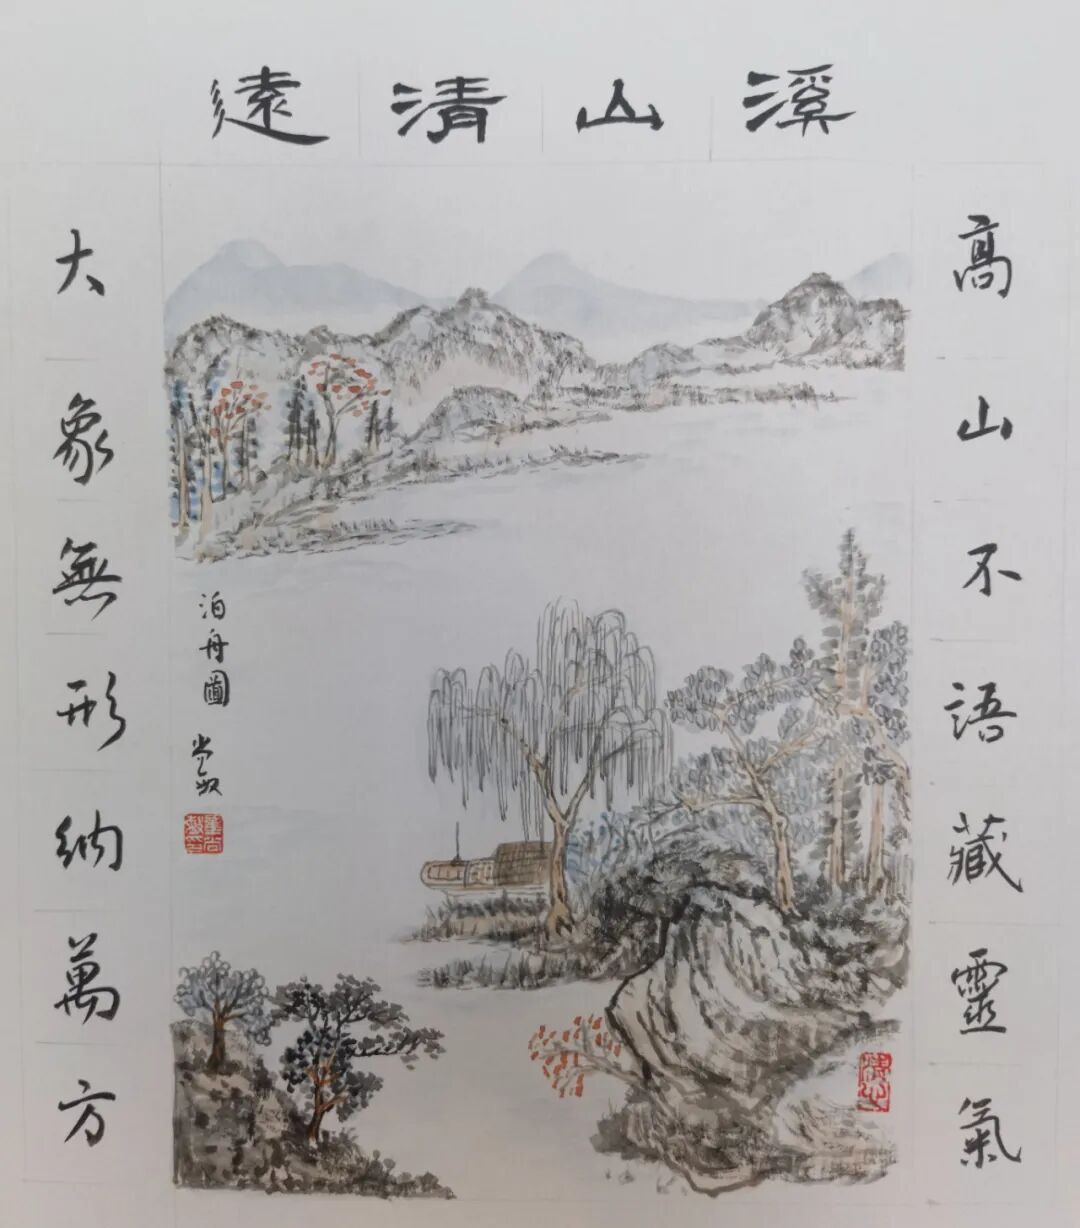 溪山清遠
高山不語藏靈氣
大象無形納萬方
泊舟圖
尚敏